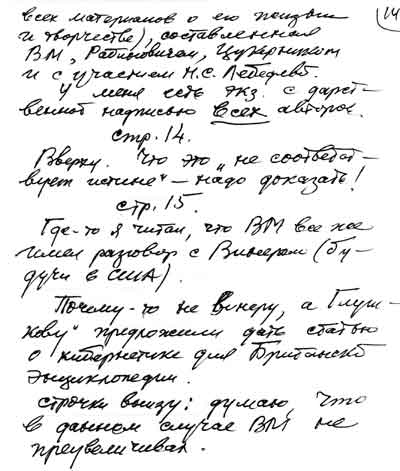 всех материалов о его жизни
и творчестве), составленная
ВМ, Рабиновичем, Цукерником
и с участием Н.С. Лебедевой.
У меня есть экз. с дарст-
венной надписью всех авторов.
стр. 14.
Вверху. Что это „не соответст-
вует истине“ – надо доказать!
стр. 15.
Где-то я читал, что ВМ все же
имел разговор с Винером (бу-
дучи в США).
Почему-то не Винеру, а Глуш-
кову" предложили дать статью
о кибернетике для Британской
энциклопедии.
строчки внизу: думаю, что
в данном случае ВМ не
преувеличивал.
14